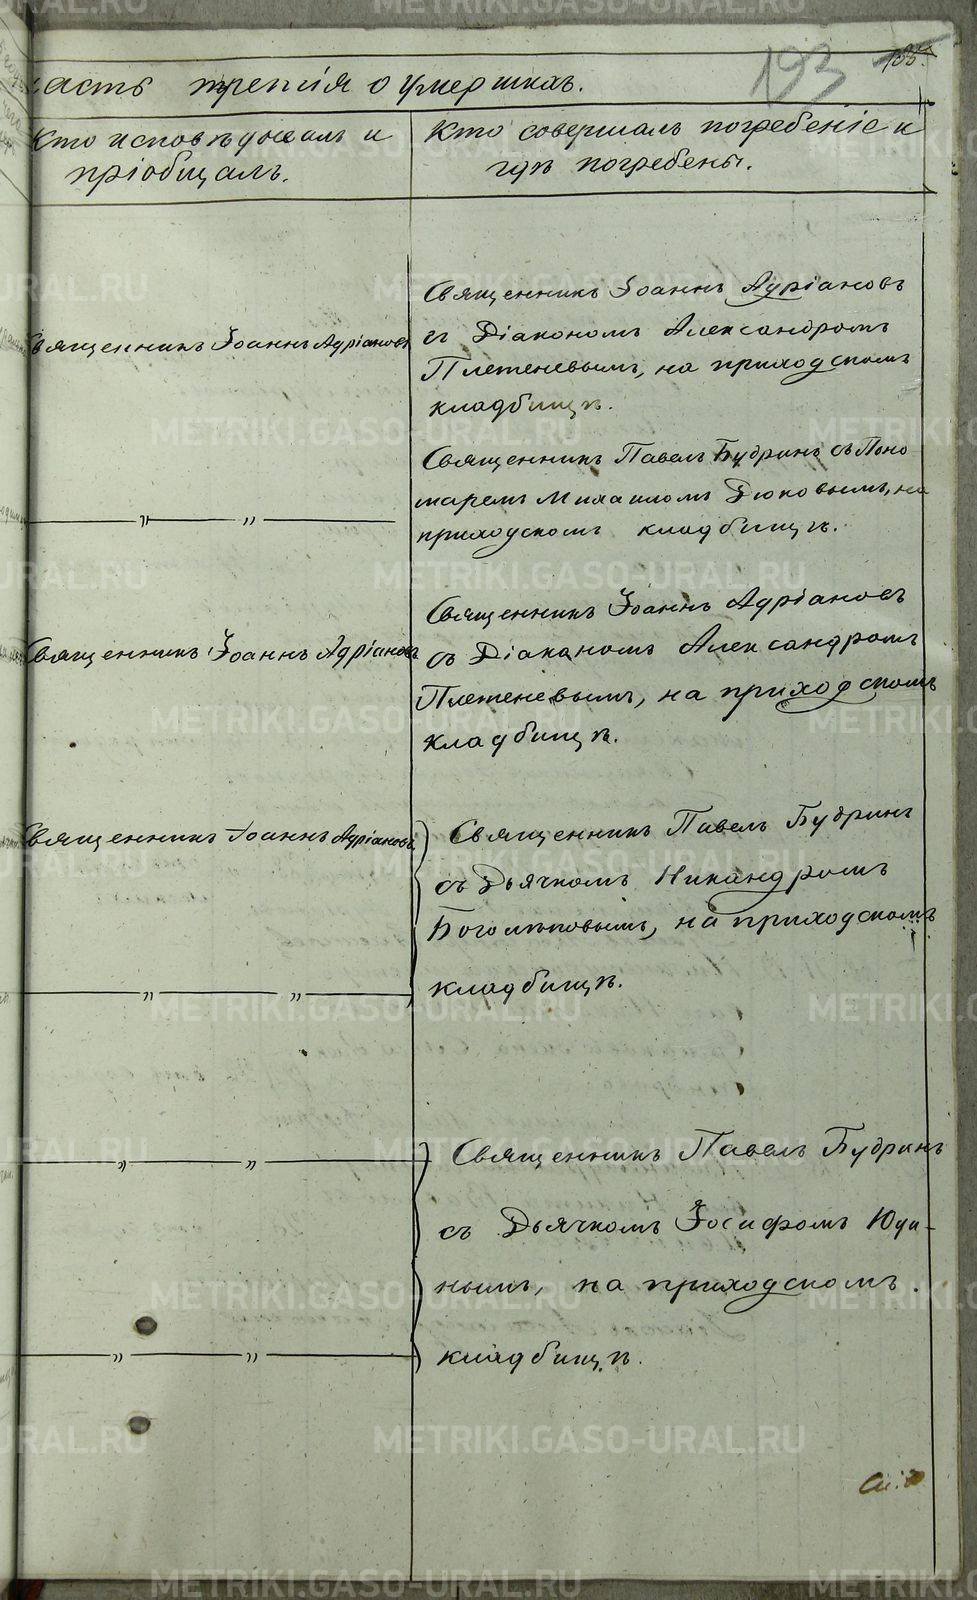 193 135.
часть третія о умершихъ.
Кто исповѣдовалъ и
пріобщалъ.
Кто совершалъ погребеніе и
гдѣ погребены.
Священникъ Іоаннъ Адріановъ
Священникъ Іоаннъ Адріановъ
съ Діакономъ Александромъ
Плетеневымъ, на приходскомъ
кладбищѣ.
— „ — „ —
Священникъ Павелъ Будринъ съ Поно
маремъ Михаиломъ Дюковымъ, на
приходскомъ кладбищѣ.
Священникъ Іоаннъ Адріановъ
Священникъ Іоаннъ Адріановъ
съ Діакономъ Александромъ
Плетеневымъ, на приходскомъ
кладбищѣ.
Священникъ Іоаннъ Адріановъ
— „ — „ —
Священникъ Павелъ Будринъ
съ Дьячкомъ Никандромъ
Боголѣповымъ, на приходскомъ
кладбищѣ.
— „ — „ —
— „ — „ —
Священникъ Павелъ Будринъ
съ Дьячкомъ Іосифомъ Юди-
нымъ, на приходскомъ
кладбищѣ.
METRIKI.GASO-URAL.RU